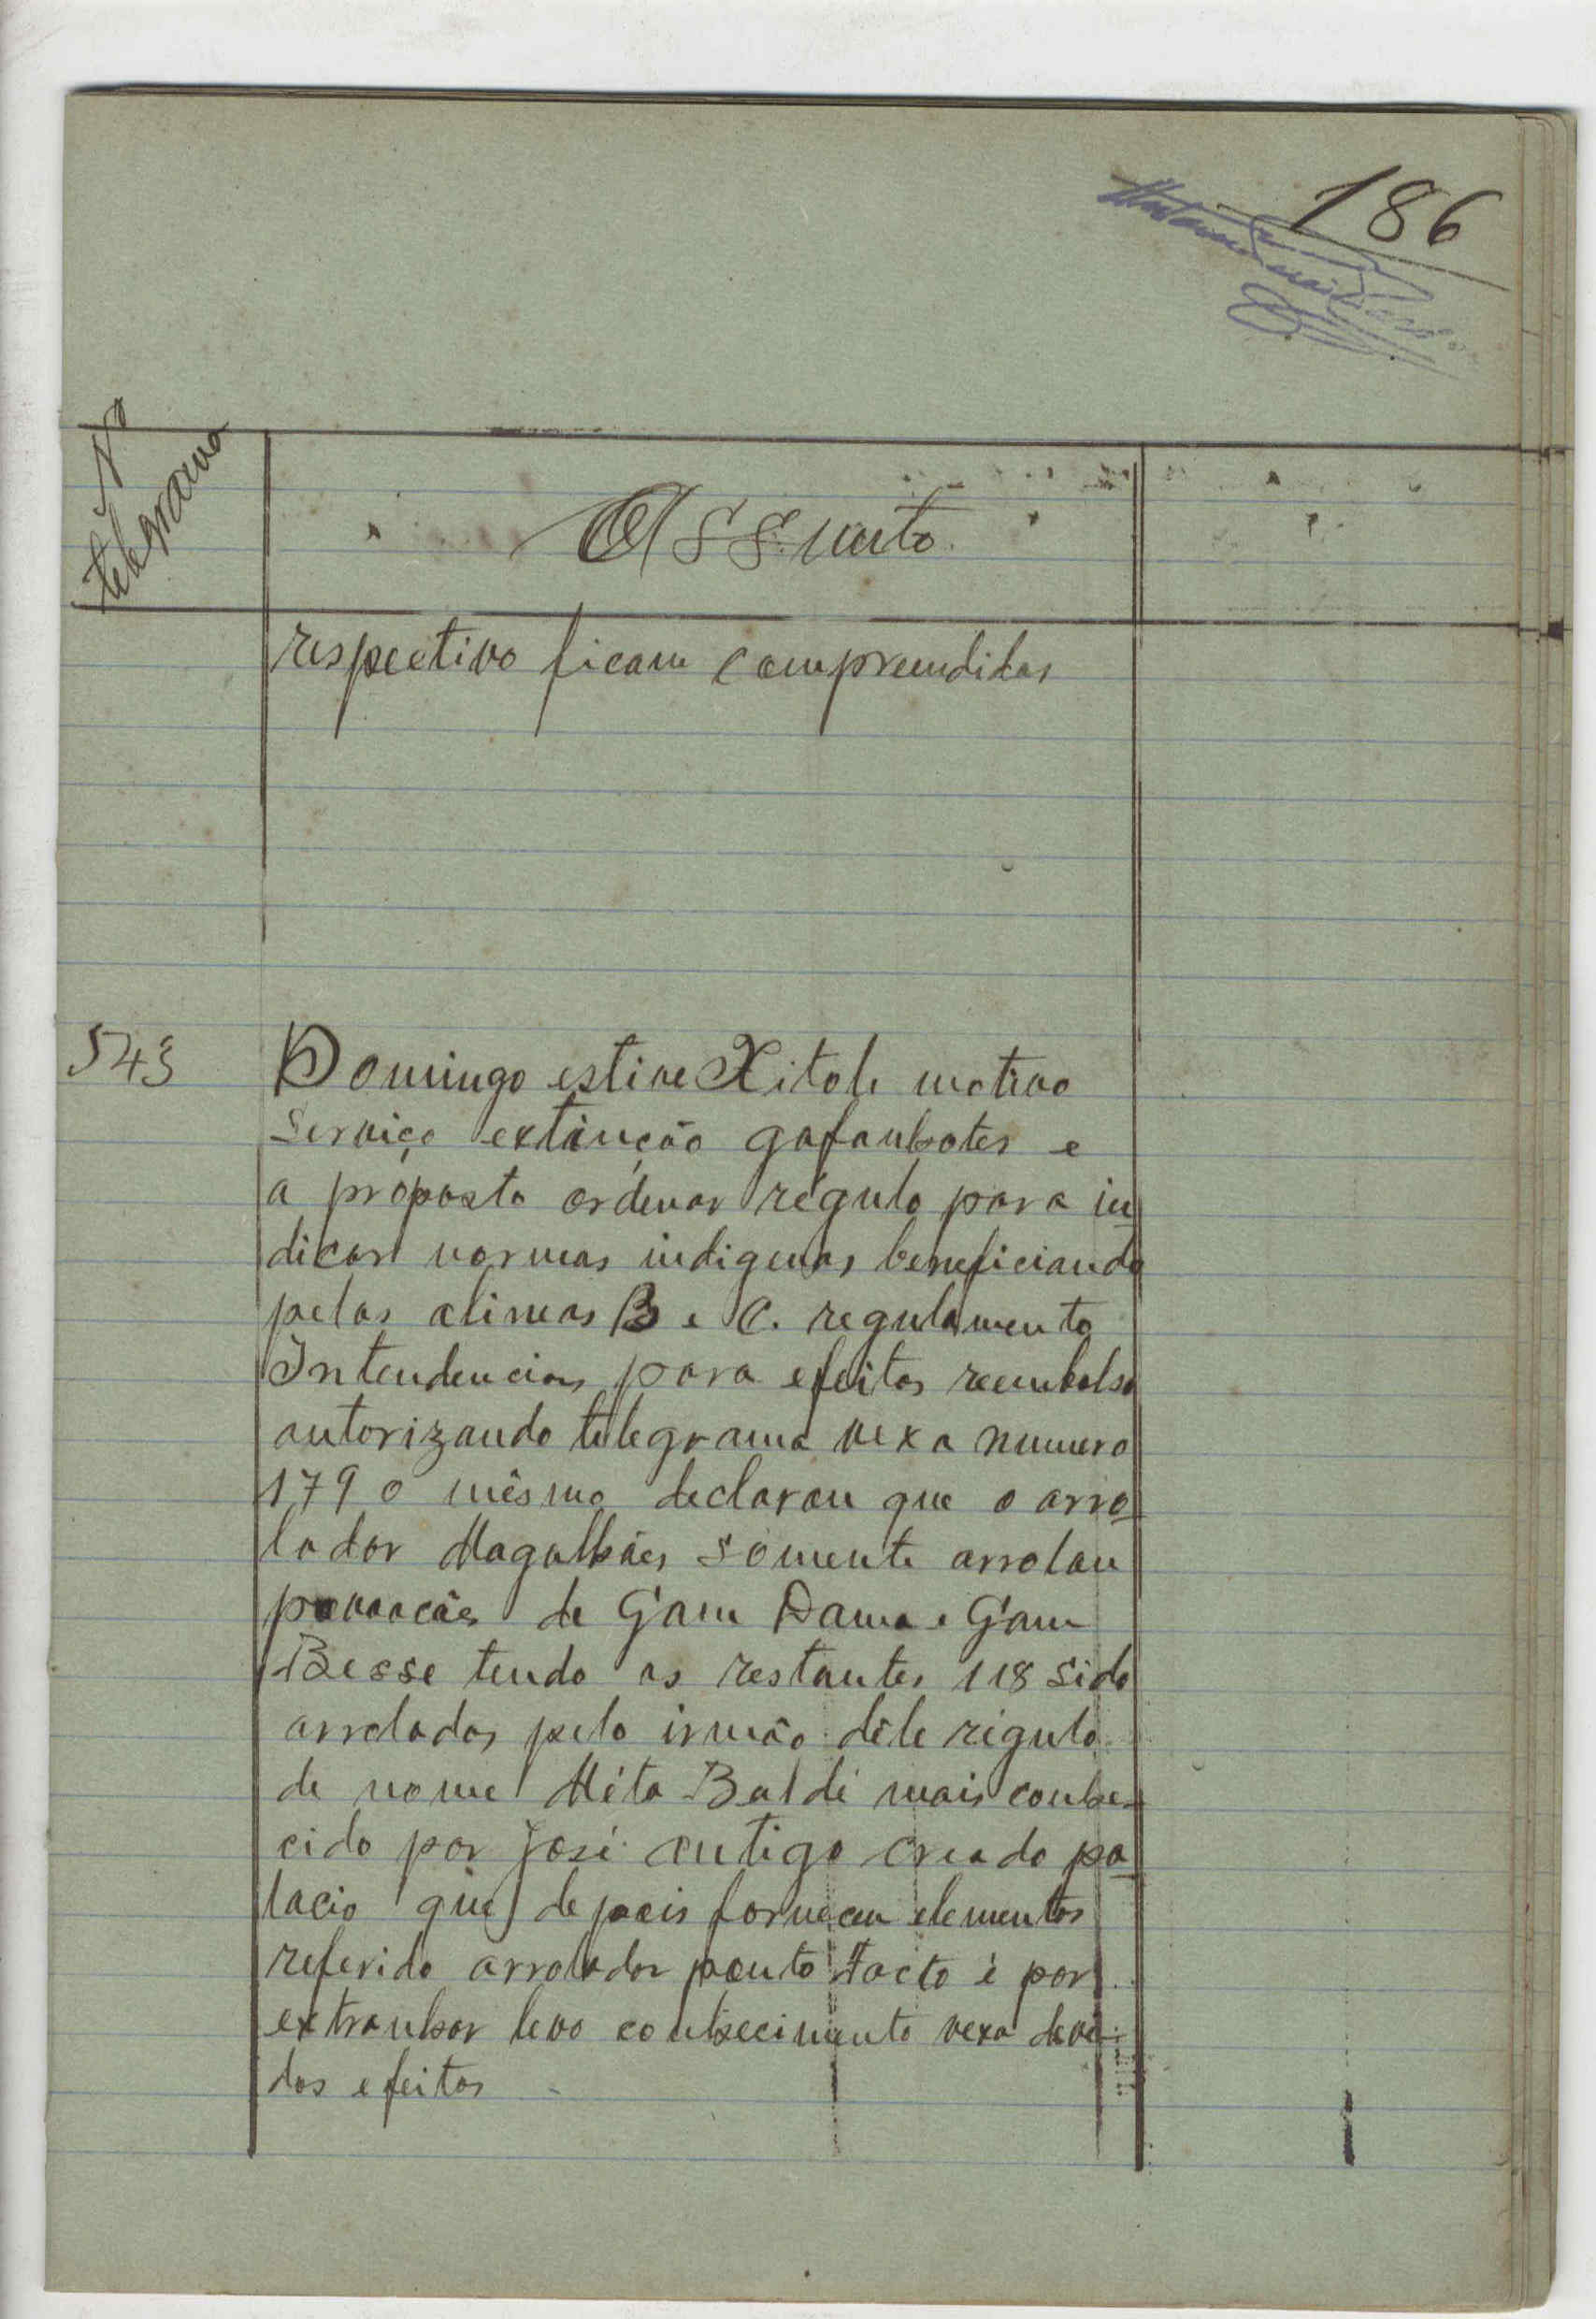 186
Nº
telegrama
Assunto
respectivo ficam compreendidas
543
Domingo estive Xitole motivo
serviço extinção gafanhotos e
a propósito ordenar régulo para in
dicar normas indigenas beneficiando
pelas alineas B e C. regulamento
Intendencias para efeitos reembolso
autorizando telegrama vexa numero
179 o mêsmo declarou que o arro
lador Magalhães sómente arrolou
povoacões de Gam Dama e Gam
Besse tendo as restantes 118 sido
arroladas pelo irmão dêle régulo
de nome Méta Baldé mais conhe-
cido por José antigo creado pa
lacio que depois forneceu elementos
referido arrolador ponto facto é por
extranhar levo conhecimento vexa devi-
dos efeitos